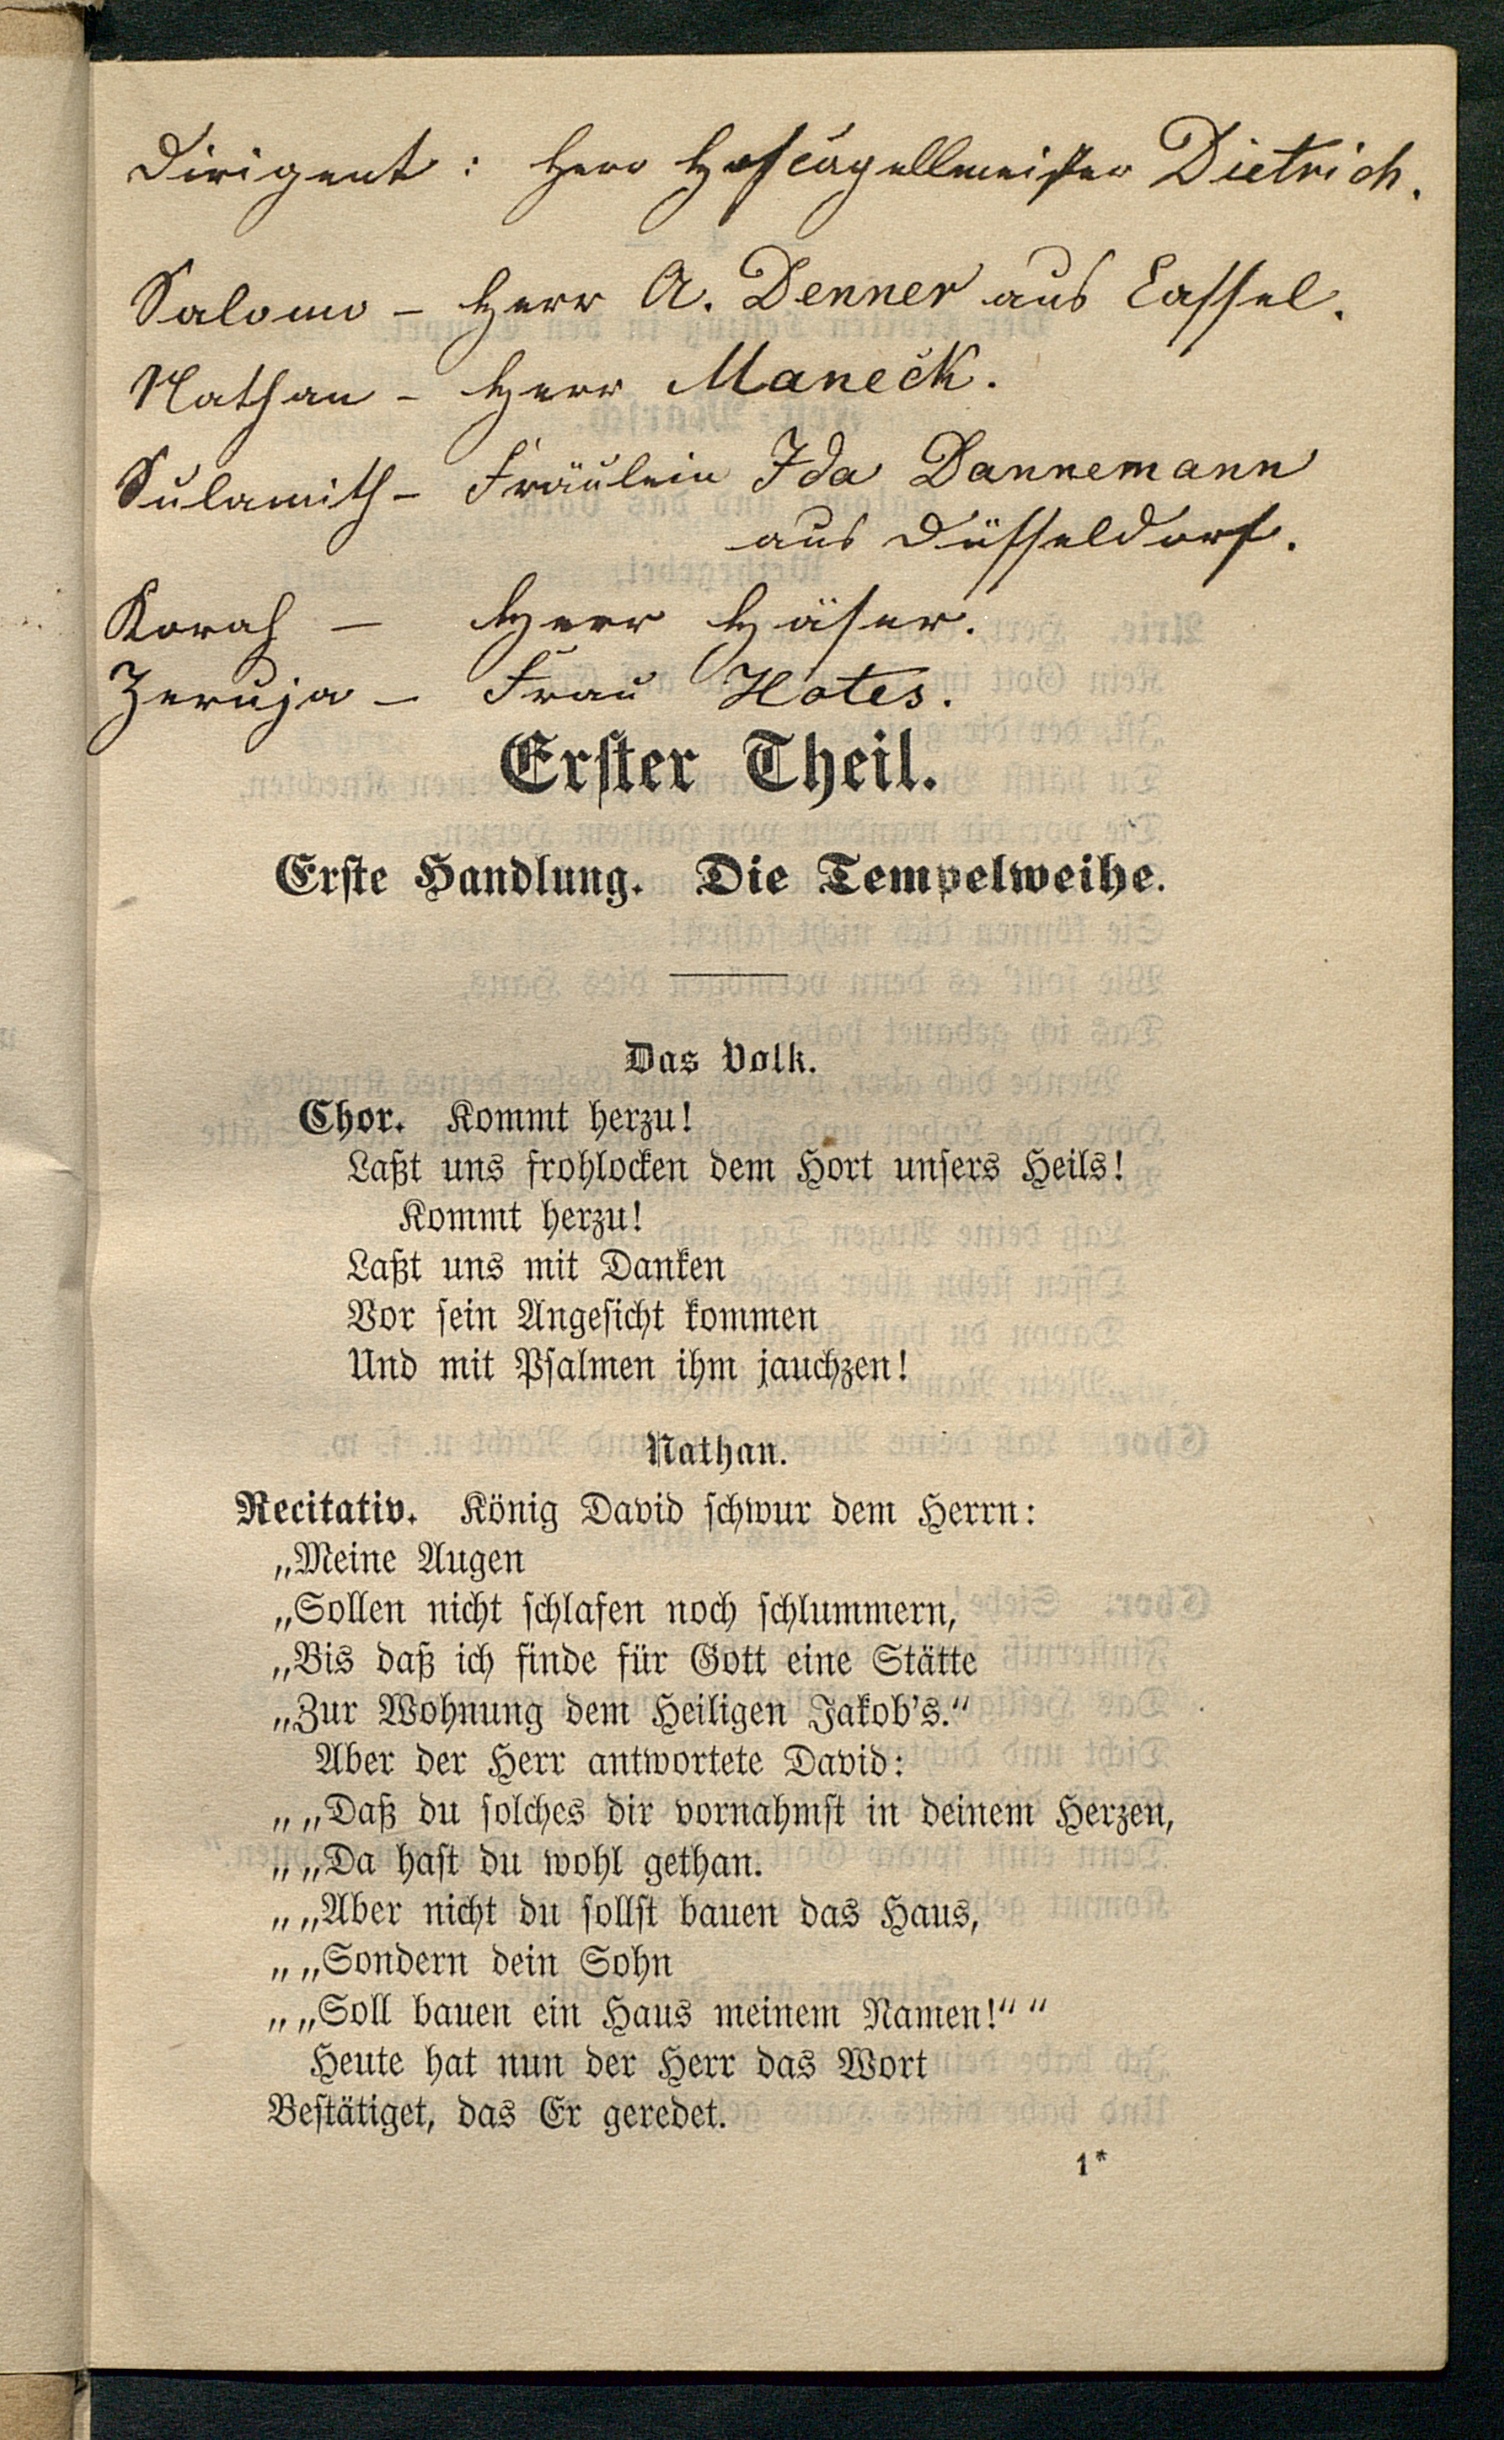 Dirigent: Herr Hofcapellmeister Dietrich.
Salomo - Herr A. Denner aus Cassel.
Nathan - Herr Maneck.
Sulamith - Fräulein Ida Dannemann
aus Düsseldorf.
Korah - Herr Häser.
Zeruja - Frau Hotes.
Erster Theil.
Erste Handlung. Die Tempelweihe.
Das Volk.
Chor. Kommt herzu!
Laßt uns frohlocken dem Hort unsers Heils!
Kommt herzu!
Laßt uns mit Danken
Vor sein Angesicht kommen
Und mit Psalmen ihm jauchzen!
Nathan.
Recitativ. König David schwur dem Herrn:
„Meine Augen
„Sollen nicht schlafen noch schlummern,
„Bis daß ich finde für Gott eine Stätte
„Zur Wohnung dem Heiligen Jakob's.“
Aber der Herr antwortete David:
„„Daß du solches dir vornahmst in deinem Herzen,
„„Da hast du wohl gethan.
„„Aber nicht du sollst bauen das Haus,
„„Sondern dein Sohn
„„Soll bauen ein Haus meinem Namen!““
Heute hat nun der Herr das Wort
Bestätiget, das Er geredet.
1*